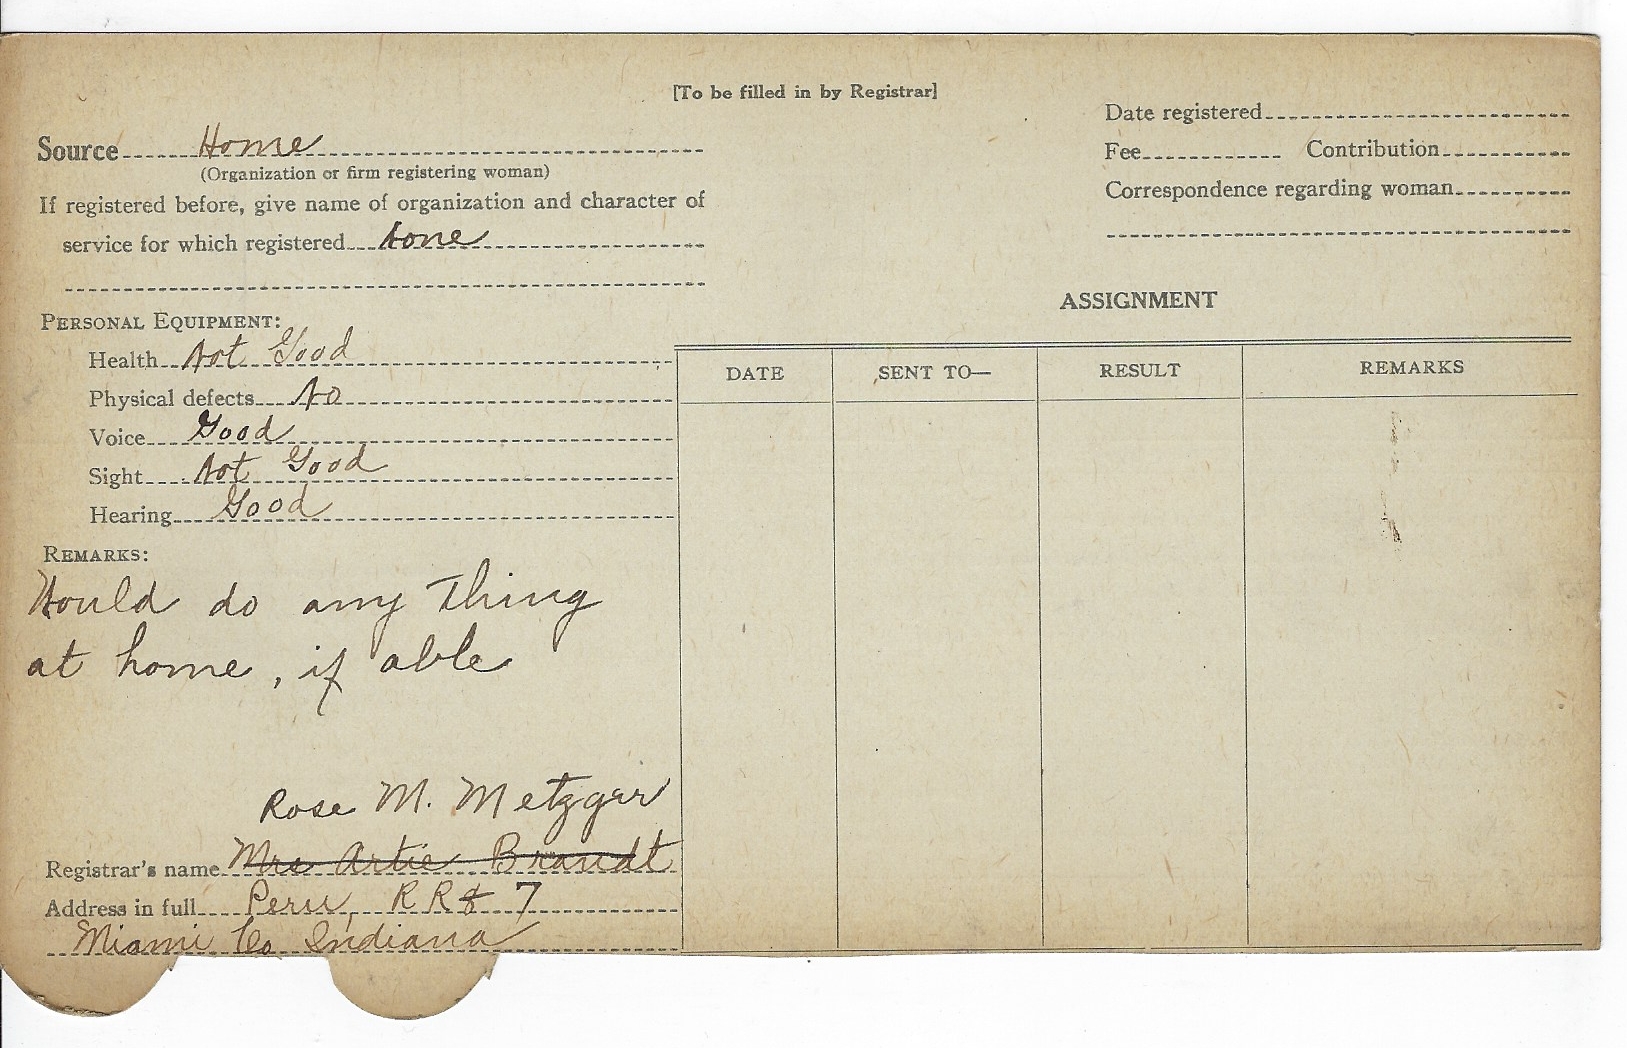 [To be filled in by Registrar]
Date registered
Source Home
Fee Contribution
(Organization or firm registering woman)
Correspondence regarding woman
If registered before, give name of organization and character of
service for which registered None
ASSIGNMENT
PERSONAL EQUIPMENT:
Health Not Good
Physical defects No
Voice Good
Sight Not Good
Hearing Good
DATE SENT TO— RESULT REMARKS
REMARKS:
Would do any thing
at home, if able
Rose M. Metzgar
Registrar's name Mrs Artie Brandt
Address in full Peru, RR 7
Miami Co Indiana